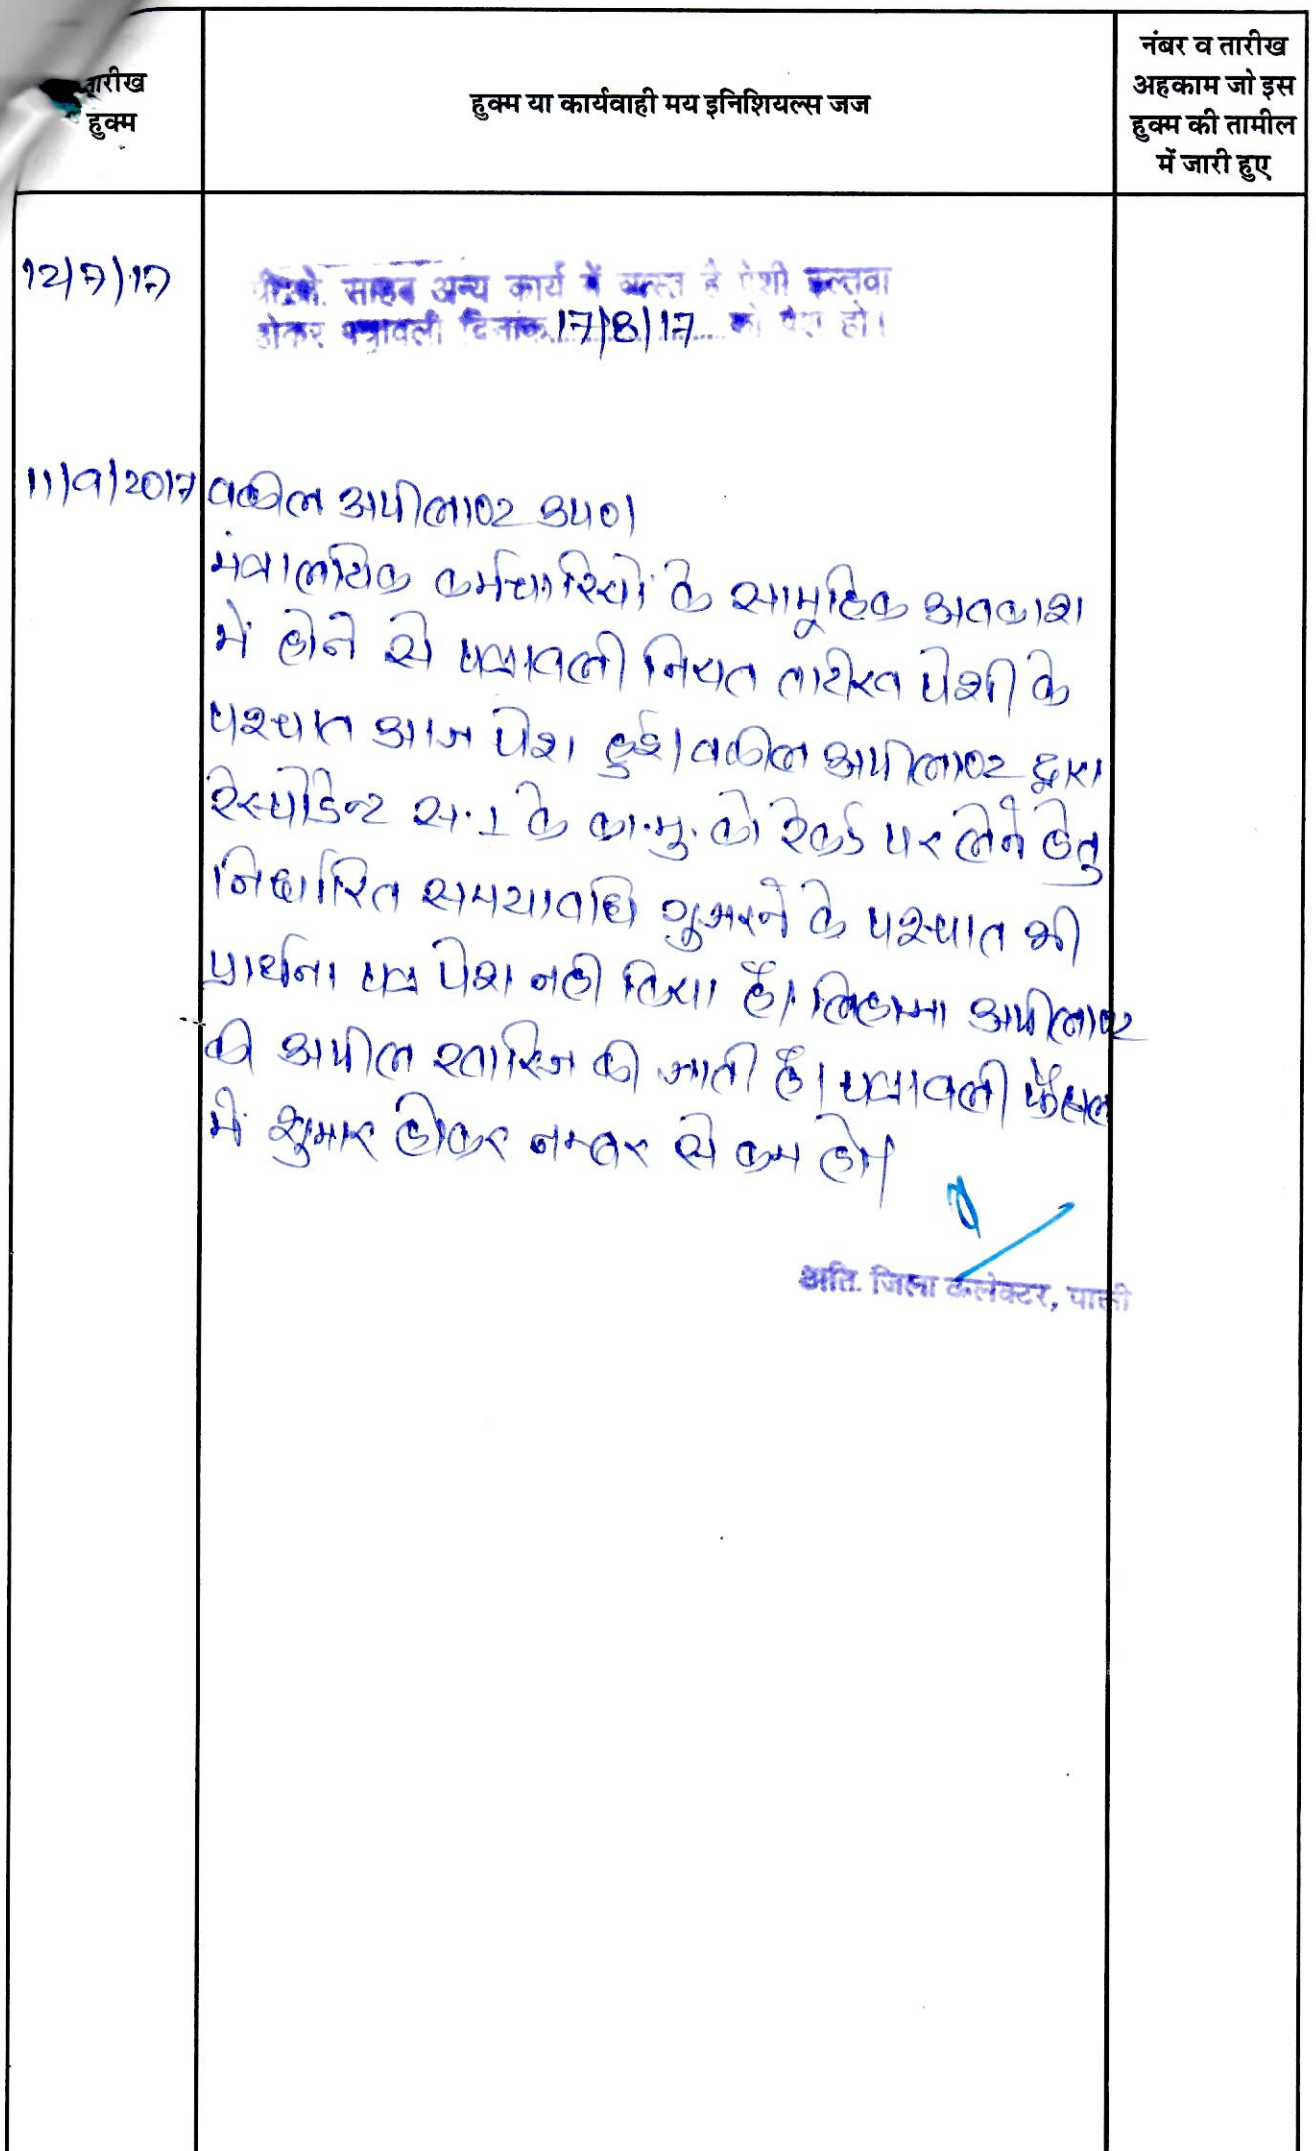 तारीख
हुक्म
हुक्म या कार्यवाही मय इनिशियल्स जज
नंबर व तारीख
अहकाम जो इस
हुक्म की तामील
में जारी हुए
12/7/17
साहब अन्य कार्य में व्यस्त है पेशी मुल्तवी
होकर पत्रावली दिनांक 17/8/17 को पेश हो।
11/9/2017 वकील अपीलाण्ट उप०।
मंत्रालयिक कर्मचारियों के सामूहिक अवकाश
में होने से पत्रावली नियत तारीख पेशी के
पश्चात आज पेश हुई। वकील अपीलाण्ट द्वारा
रेस्पोडेन्ट स.1 के का.मु. को रेकर्ड पर लेने हेतु
निर्धारित समयावधि गुजरने के पश्चात भी
प्रार्थना पत्र पेश नही किया है। लिहाजा अपीलाण्ट
की अपील खारिज की जाती है। पत्रावली फैसल
में शुमार होकर नम्बर से कम हो।
अति. जिला कलेक्टर, पाली